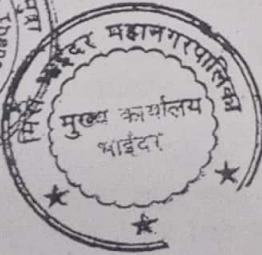 मिरा भाईंदर महानगरपालिका
मुख्य कार्यालय
भाईंदर